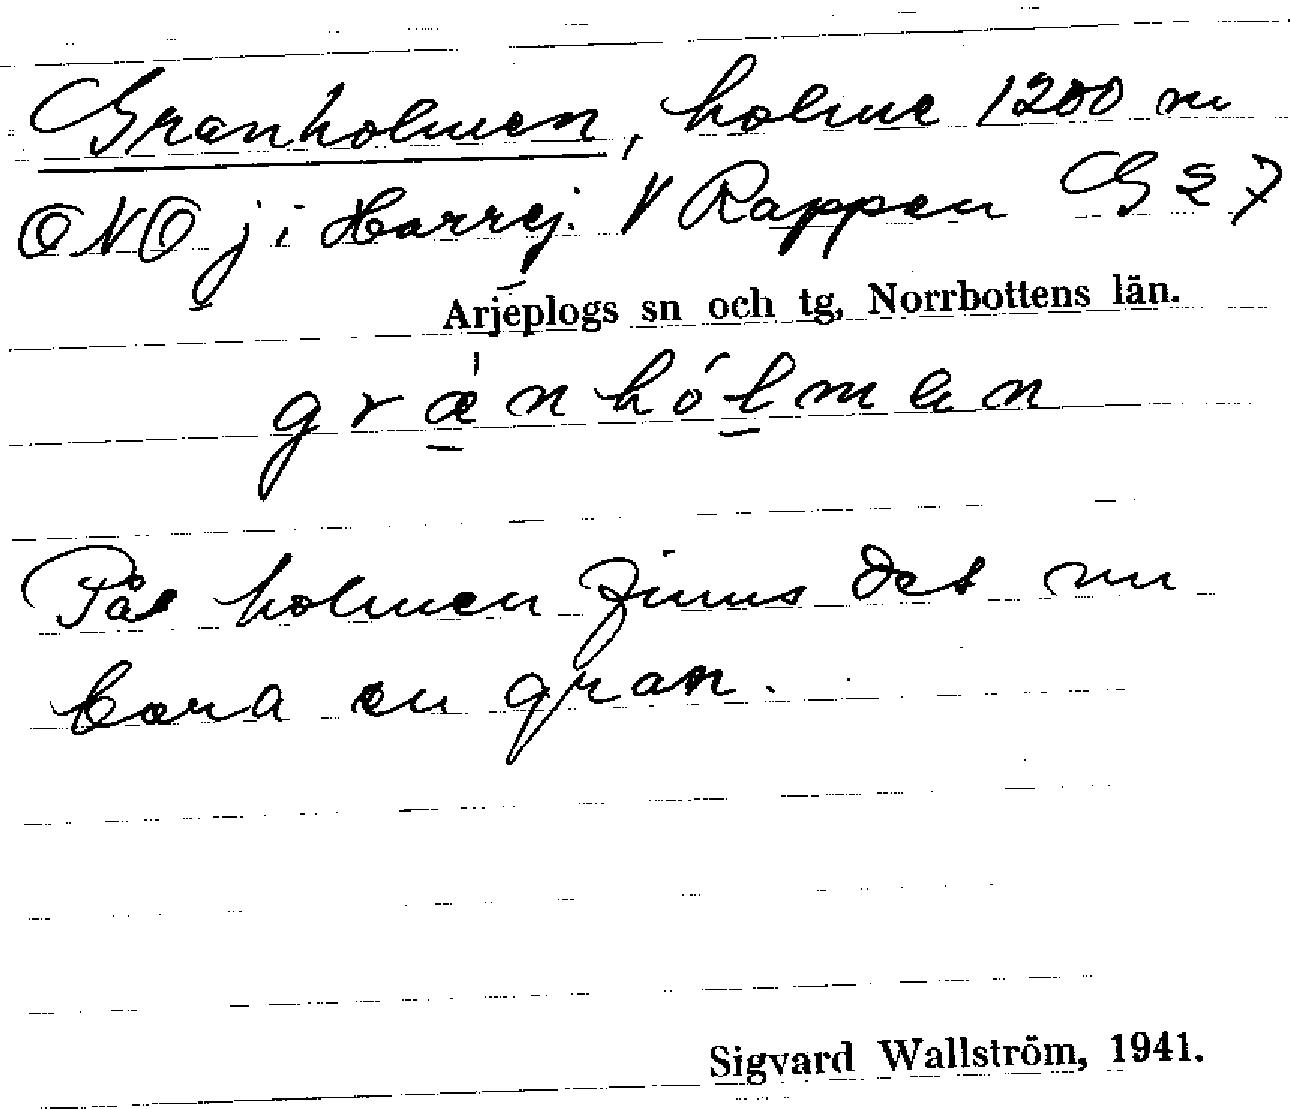 Granholmen, holme 1200 m
ONO j i Harrej. V Rappen G 27
Arjeplogs sn och tg, Norrbottens län.
gránhólmen
På holmen finns det nu
bara en gran.
Sigvard Wallström, 1941.